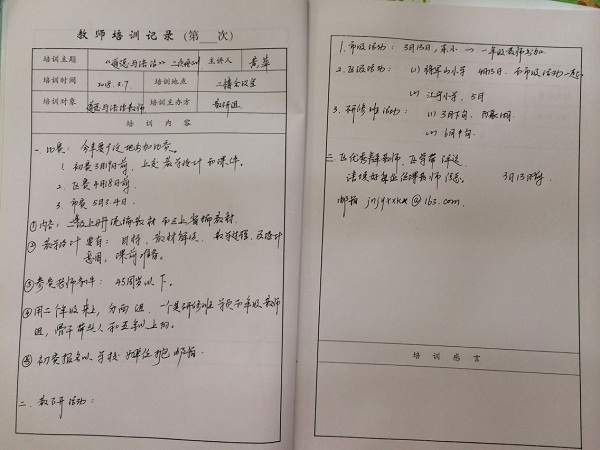 教师培训记录（第 次）
培训主题 《道德与法治》二次培训 主讲人 黄苹
培训时间 2018.3.7. 培训地点 二楼会议室
培训对象 道德与法治教师 培训主办方 教研组
培训内容
一、比赛：今年要个设地参加比赛。
1. 初赛3月19日前，上交教学设计和课件。
2. 区赛4月18日前，
3. 市赛5月3.4日
①内容：二年级上册统编教材
②教学设计要有：目标、教材解读、教学过程、及设计
意图，课前准备。
③参赛老师条件：45周岁以下。
④用二个年级来上，分两组，一个是研修班
组，骨干带头人和五年以上的。
⑤初赛报名以学校为单位打包邮箱。
二、教研活动：
1. 市级活动：3月15日，一年级教师参加
2. 区级活动：(1) 将军山小学 4月13日，和市级活动一起
(2) 江宁小学，5月
3. 研修班活动：(1) 3月下旬，
(2) 6月中旬
三、区优秀青年教师、区学带 评选
3月13日前
邮箱 jnjyxxkx@163.com.
培训感言